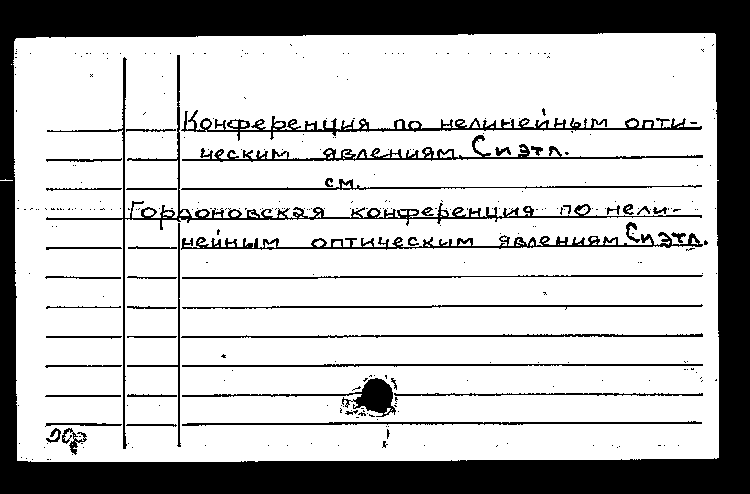 Конференция по нелинейным опти-
ческим явлениям. Сиэтл.
см.
Гордоновская конференция по нели-
нейным оптическим явлениям. Сиэтл.